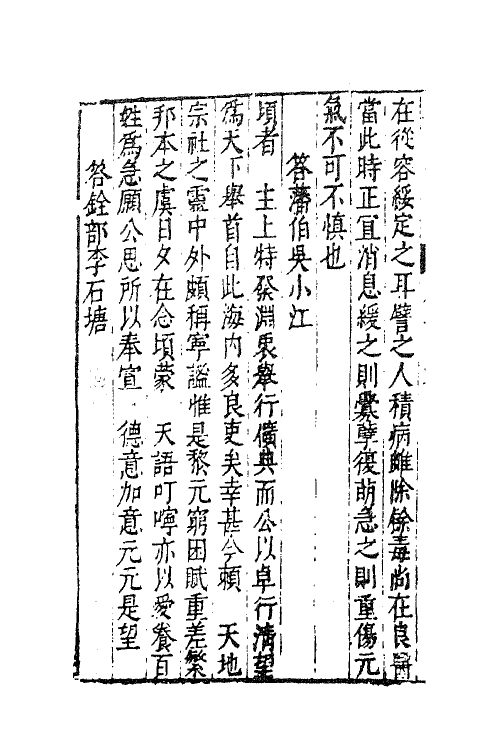 在從容綏定之耳譬之人積病雖除餘毒尚在良醫
當此時正宜消息緩之則釁孽復萌急之則重傷元
氣不可不慎也
答藩伯吳小江
頃者　主上特發淵衷舉行儀典而公以卓行清望
爲天下舉首自此海內多良吏矣幸甚今賴　天地
宗社之靈中外頗稱寧謐惟是黎元窮困賦重差繁
邦本之虞日夕在念頃蒙　天語叮嚀亦以愛養百
姓爲急願公思所以奉宣　德意加意元元是望
答銓部李石塘